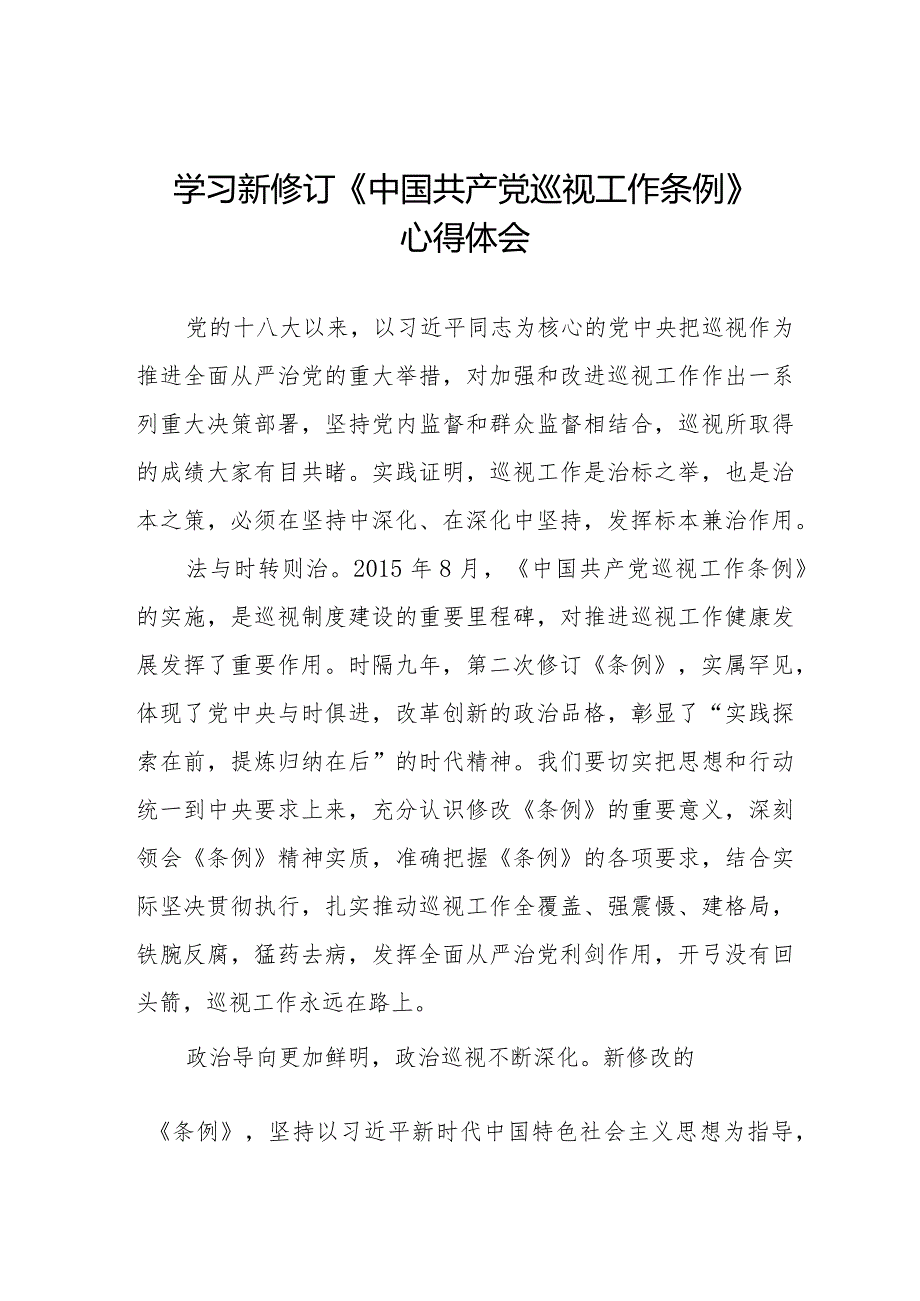 学习新修订《中国共产党巡视工作条例》
心得体会
党的十八大以来，以习近平同志为核心的党中央把巡视作为
推进全面从严治党的重大举措，对加强和改进巡视工作作出一系
列重大决策部署，坚持党内监督和群众监督相结合，巡视所取得
的成绩大家有目共睹。实践证明，巡视工作是治标之举，也是治
本之策，必须在坚持中深化、在深化中坚持，发挥标本兼治作用。
法与时转则治。2015年8月，《中国共产党巡视工作条例》
的实施，是巡视制度建设的重要里程碑，对推进巡视工作健康发
展发挥了重要作用。时隔九年，第二次修订《条例》，实属罕见，
体现了党中央与时俱进，改革创新的政治品格，彰显了“实践探
索在前，提炼归纳在后”的时代精神。我们要切实把思想和行动
统一到中央要求上来，充分认识修改《条例》的重要意义，深刻
领会《条例》精神实质，准确把握《条例》的各项要求，结合实
际坚决贯彻执行，扎实推动巡视工作全覆盖、强震慑、建格局，
铁腕反腐，猛药去病，发挥全面从严治党利剑作用，开弓没有回
头箭，巡视工作永远在路上。
政治导向更加鲜明，政治巡视不断深化。新修改的
《条例》，坚持以习近平新时代中国特色社会主义思想为指导，